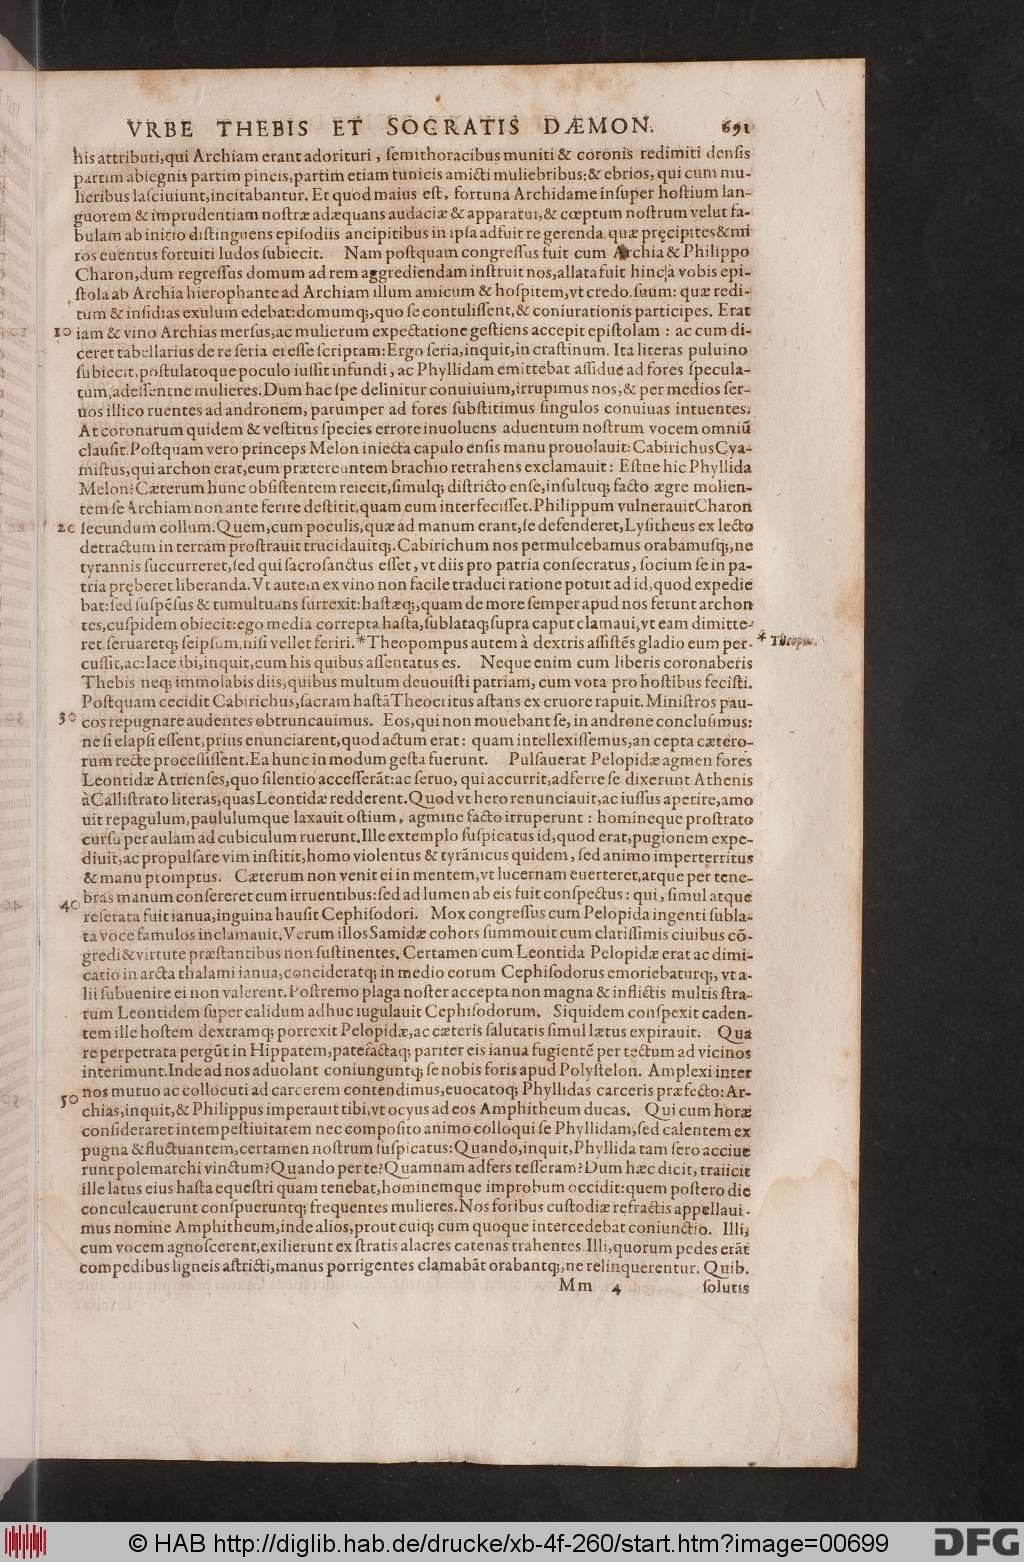 VRBE THEBIS ET SOCRATIS DÆMON. 691
his attributi,qui Archiam erant adorituri, ſemithoracibus muniti & coronis redimiti denſis
partim abiegnis partim pineis,partim etiam tunicis amicti muliebribus:& ebrios, qui cum mu-
lieribus laſciuiunt,incitabantur. Et quod maius eſt, fortuna Archidame inſuper hoſtium lan-
guorem & imprudentiam noſtræ adæquans audaciæ & apparatui,& cœptum noſtrum velut fa-
bulam ab initio diſtinguens epiſodiis ancipitibus in ipſa adfuit re gerenda quæ pręcipites&mi
ros euentus fortuiti ludos ſubiecit. Nam poſtquam congreſſus fuit cum Archia & Philippo
Charon,dum regreſſus domum ad rem aggrediendam inſtruit nos,allata fuit hinc,a vobis epi-
ſtola ab Archia hierophante ad Archiam illum amicum & hoſpitem,vt credo,ſuum: quæ redi-
tum & inſidias exulum edebat:domumq;,quo ſe contuliſſent,& coniurationis participes. Erat
10 iam & vino Archias merſus,ac mulierum expectatione geſtiens accepit epiſtolam : ac cum di-
ceret tabellarius de re ſeria ei eſſe ſcriptam:Ergo ſeria,inquit,in craſtinum. Ita literas puluino
ſubiecit,poſtulatoque poculo iuſſit infundi, ac Phyllidam emittebat aſſidue ad fores ſpecula-
tum,adeſſentne mulieres.Dum hac ſpe delinitur conuiuium,irrupimus nos,& per medios ſer-
uos illico ruentes ad andronem, parumper ad fores ſubſtitimus ſingulos conuiuas intuentes.
At coronarum quidem & veſtitus ſpecies errore inuoluens aduentum noſtrum vocem omniũ
clauſit.Poſtquam vero princeps Melon iniecta capulo enſis manu prouolauit: Cabirichus Cya-
miſtus,qui archon erat,eum prætereuntem brachio retrahens exclamauit : Eſtne hic Phyllida
Melon?Cæterum hunc obſiſtentem reiecit,ſimulq; diſtricto enſe,inſultuq; facto ægre molien-
tem ſe Archiam non ante ferire deſtitit,quam eum interfeciſſet.Philippum vulnerauit Charon
20 ſecundum collum.Quem,cum poculis,quæ ad manum erant,ſe defenderet,Lyſitheus ex lecto
detractum in terram proſtrauit trucidauitq;. Cabirichum nos permulcebamus orabamuſq;,ne
tyrannis ſuccurreret,ſed qui ſacroſanctus eſſet, vt diis pro patria conſecratus, ſocium ſe in pa-
tria pręberet liberanda. Vt autem ex vino non facile traduci ratione potuit ad id,quod expedie
bat:ſed ſuſpẽſus & tumultuans ſurrexit:haſtæq;,quam de more ſemper apud nos ferunt archon
tes,cuſpidem obiecit:ego media correpta haſta,ſublataq; ſupra caput clamaui,vt eam dimitte-
ret ſeruaretq; ſeipſum,niſi vellet feriri.*Theopompus autem à dextris aſſiſtẽs gladio eum per- * Theopus.
cuſſit,ac:Iace ibi,inquit,cum his quibus aſſentatus es. Neque enim cum liberis coronaberis
Thebis neq; immolabis diis,quibus multum deuouiſti patriam, cum vota pro hoſtibus feciſti.
Poſtquam cecidit Cabirichus,ſacram haſtã Theocritus aſtans ex cruore rapuit. Miniſtros pau-
30 cos repugnare audentes obtruncauimus. Eos,qui non mouebant ſe, in androne concluſimus:
ne ſi elapſi eſſent,prius enunciarent,quod actum erat : quam intellexiſſemus,an cepta cætero-
rum recte proceſſiſſent.Ea hunc in modum geſta fuerunt. Pulſauerat Pelopidæ agmen fores
Leontidæ Atrienſes,quo ſilentio acceſſerãt:ac ſeruo, qui accurrit,adferre ſe dixerunt Athenis
à Calliſtrato literas,quas Leontidæ redderent. Quod vt hero renunciauit,ac iuſſus aperire,amo
uit repagulum,paululumque laxauit oſtium, agmine facto irruperunt : homineque proſtrato
curſu per aulam ad cubiculum ruerunt.Ille extemplo ſuſpicatus id,quod erat,pugionem expe-
diuit,ac propulſare vim inſtitit,homo violentus & tyrãnicus quidem, ſed animo imperterritus
& manu promptus. Cæterum non venit ei in mentem,vt lucernam euerteret,atque per tene-
40 bras manum conſereret cum irruentibus:ſed ad lumen ab eis fuit conſpectus : qui, ſimul atque
reſerata fuit ianua,inguina hauſit Cephiſodori. Mox congreſſus cum Pelopida ingenti ſubla-
ta voce famulos inclamauit. Verum illos Samidæ cohors ſummouit cum clariſſimis ciuibus cõ-
gredi & virtute præſtantibus non ſuſtinentes. Certamen cum Leontida Pelopidæ erat ac dimi-
catio in arcta thalami ianua,concideratq; in medio eorum Cephiſodorus emoriebaturq;, vt a-
lii ſubuenire ei non valerent. Poſtremo plaga noſter accepta non magna & inflictis multis ſtra-
tum Leontidem ſuper calidum adhuc iugulauit Cephiſodorum. Siquidem conſpexit caden-
tem ille hoſtem dextramq; porrexit Pelopidæ,ac cæteris ſalutatis ſimul lætus expirauit. Qua
re perpetrata pergũt in Hippatem,patefactaq; pariter eis ianua fugientẽ per tectum ad vicinos
interimunt.Inde ad nos aduolant coniunguntq; ſe nobis foris apud Polyſtelon. Amplexi inter
50 nos mutuo ac collocuti ad carcerem contendimus,euocatoq; Phyllidas carceris præfecto: Ar-
chias,inquit,& Philippus imperauit tibi,vt ocyus ad eos Amphitheum ducas. Qui cum horæ
conſideraret intempeſtiuitatem nec compoſito animo colloqui ſe Phyllidam,ſed calentem ex
pugna & fluctuantem,certamen noſtrum ſuſpicatus:Quando,inquit,Phyllida tam ſero acciue
runt polemarchi vinctum?Quando per te?Quamnam adfers teſſeram?Dum hæc dicit, traiicit
ille latus eius haſta equeſtri quam tenebat,hominemque improbum occidit:quem poſtero die
conculcauerunt conſpueruntq; frequentes mulieres. Nos foribus cuſtodiæ refractis appellaui-
mus nomine Amphitheum,inde alios,prout cuiq; cum quoque intercedebat coniunctio. Illi,
cum vocem agnoſcerent,exilierunt ex ſtratis alacres catenas trahentes. Illi,quorum pedes erãt
compedibus ligneis aſtricti,manus porrigentes clamabãt orabantq;,ne relinquerentur. Quib.
Mm 4 ſolutis
© HAB http://diglib.hab.de/drucke/xb-4f-260/start.htm?image=00699
DFG